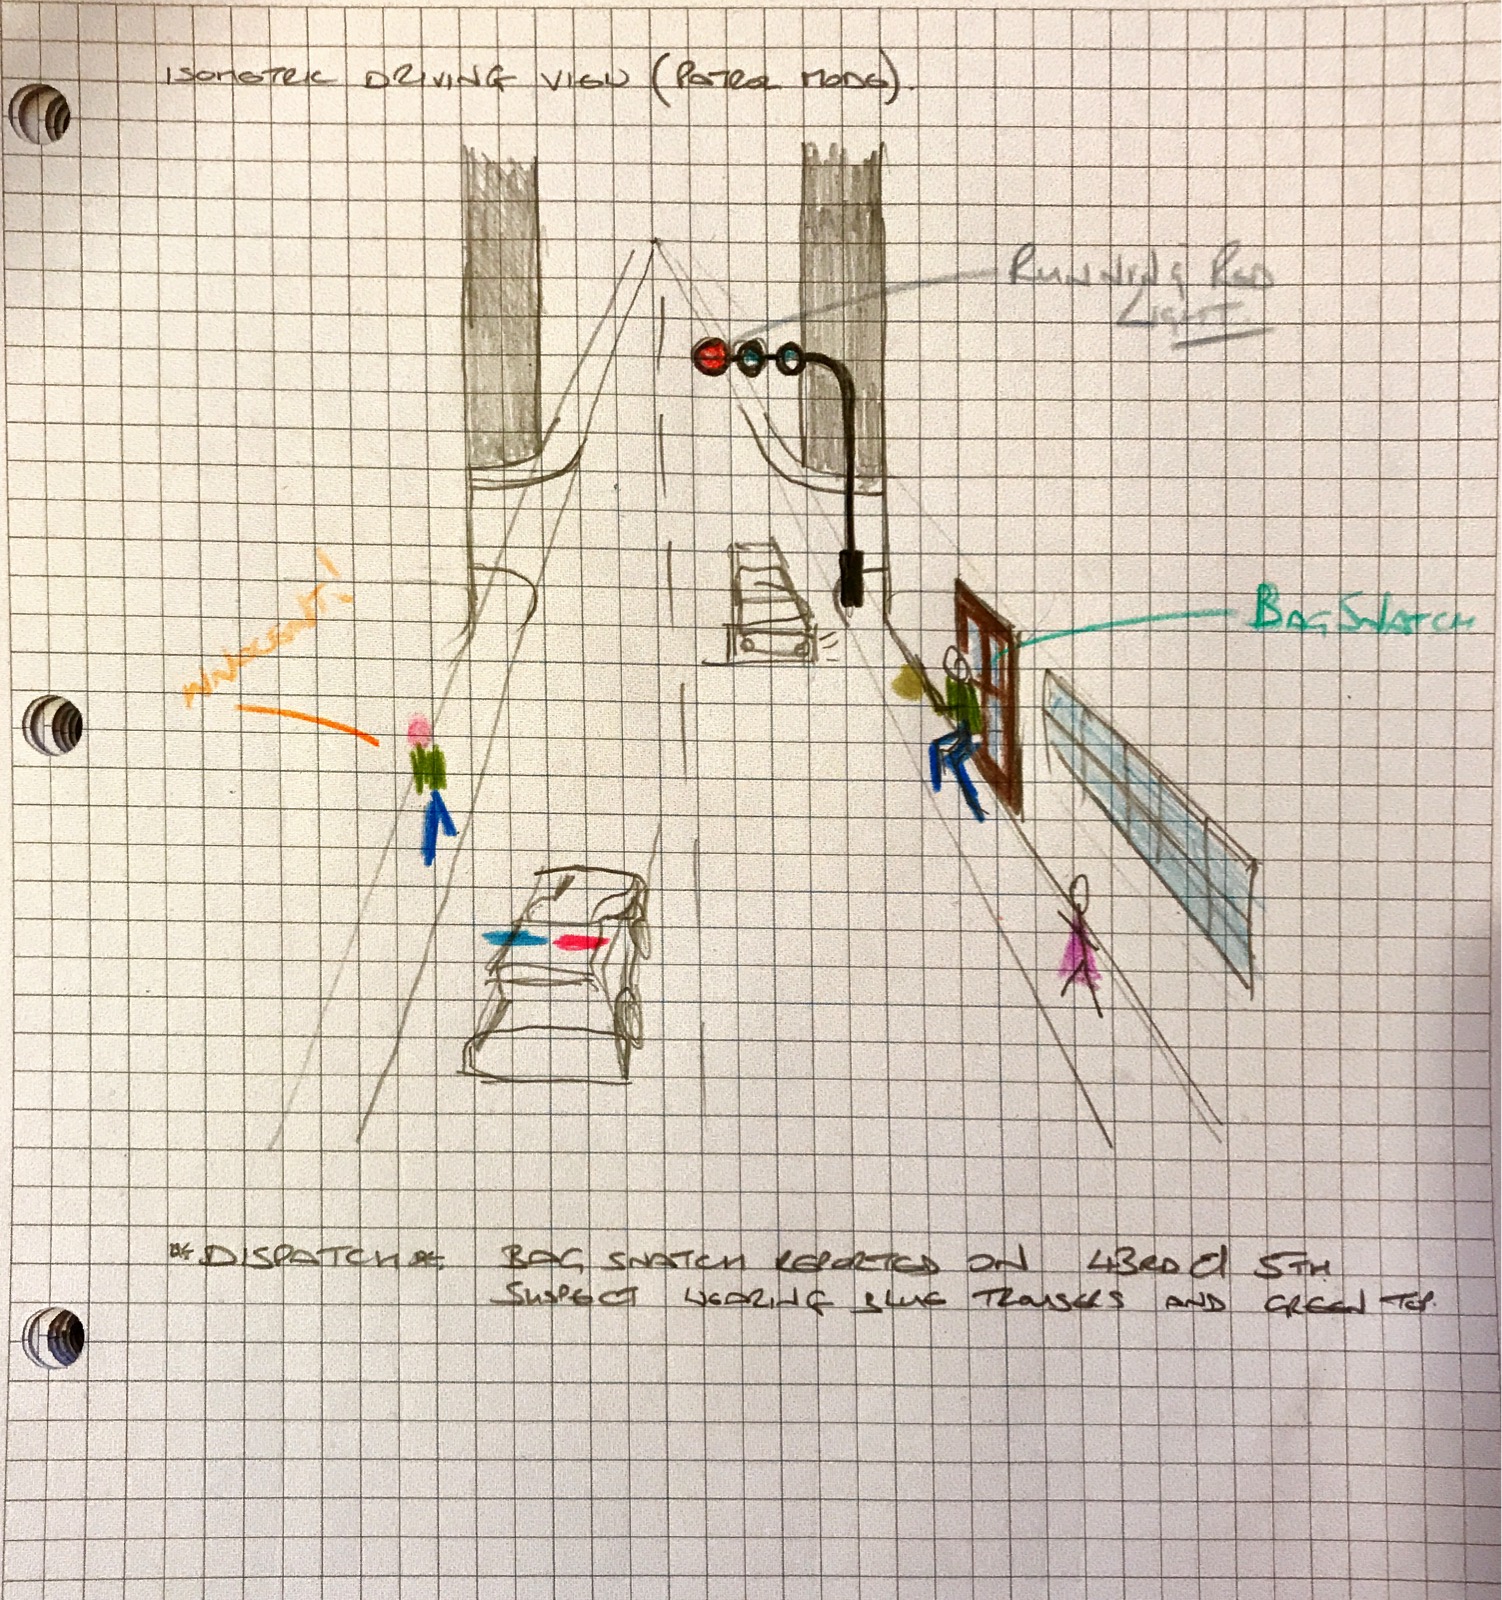 ISOMETRIC DRIVING VIEW (PATROL MODE).
RUNNING RED
LIGHT.
INNOCENT!
BAG SNATCH
*DISPATCH* BAG SNATCH REPORTED ON 43RD & 5TH
SUSPECT WEARING BLUE TROUSERS AND GREEN TOP.